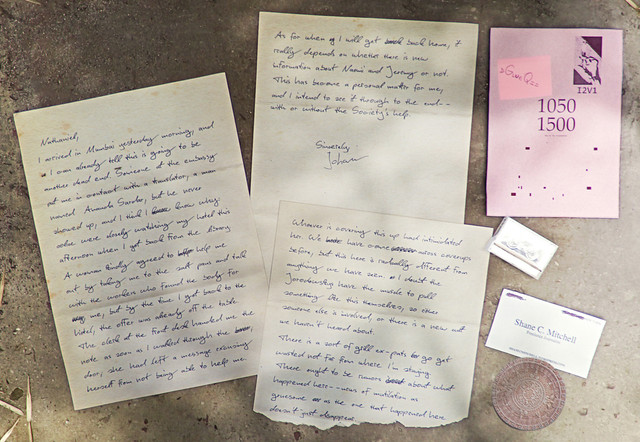 Nathaniel,
I arrived in Mumbai yesterday morning, and
I can already tell this is going to be
another dead end. Someone at the embassy
put me in contact with a translator, a man
named Amanda but he never
showed up, and I think I know why.
were closely watching my hotel this
afternoon when I got back from the
A woman finally agreed to help me
out by taking me to the salt pans and talk
with the workers who found the body for
me, but by the time I got back to the
hotel, the offer was already off the table.
The clerk at the front desk handed me the
note as soon as I walked through the
door; she had left a message excusing
herself from not being able to help me.
As for when I will get back home, it
really depends on whether there is new
information about Naomi and Jeremy or not.
This has become a personal matter for me,
and I intend to see it through to the end--
with or without the Society's help.
Sincerely,
Johan
Whoever is covering this up had intimidated
her. We have come across coverups
before, but this here is radically different from
anything we have seen. I doubt the
have the muscle to pull
something like this themselves, so either
someone else is involved, or there is a new cult
we haven't heard about.
There is a sort of grill ex-pats go get
wasted not far from where I'm staying.
There ought to be rumors about what
happened here--news of mutilation as
gruesome as the one that happened here
doesn't just disappear.
I2V1
1050
1500
Shane C. Mitchell